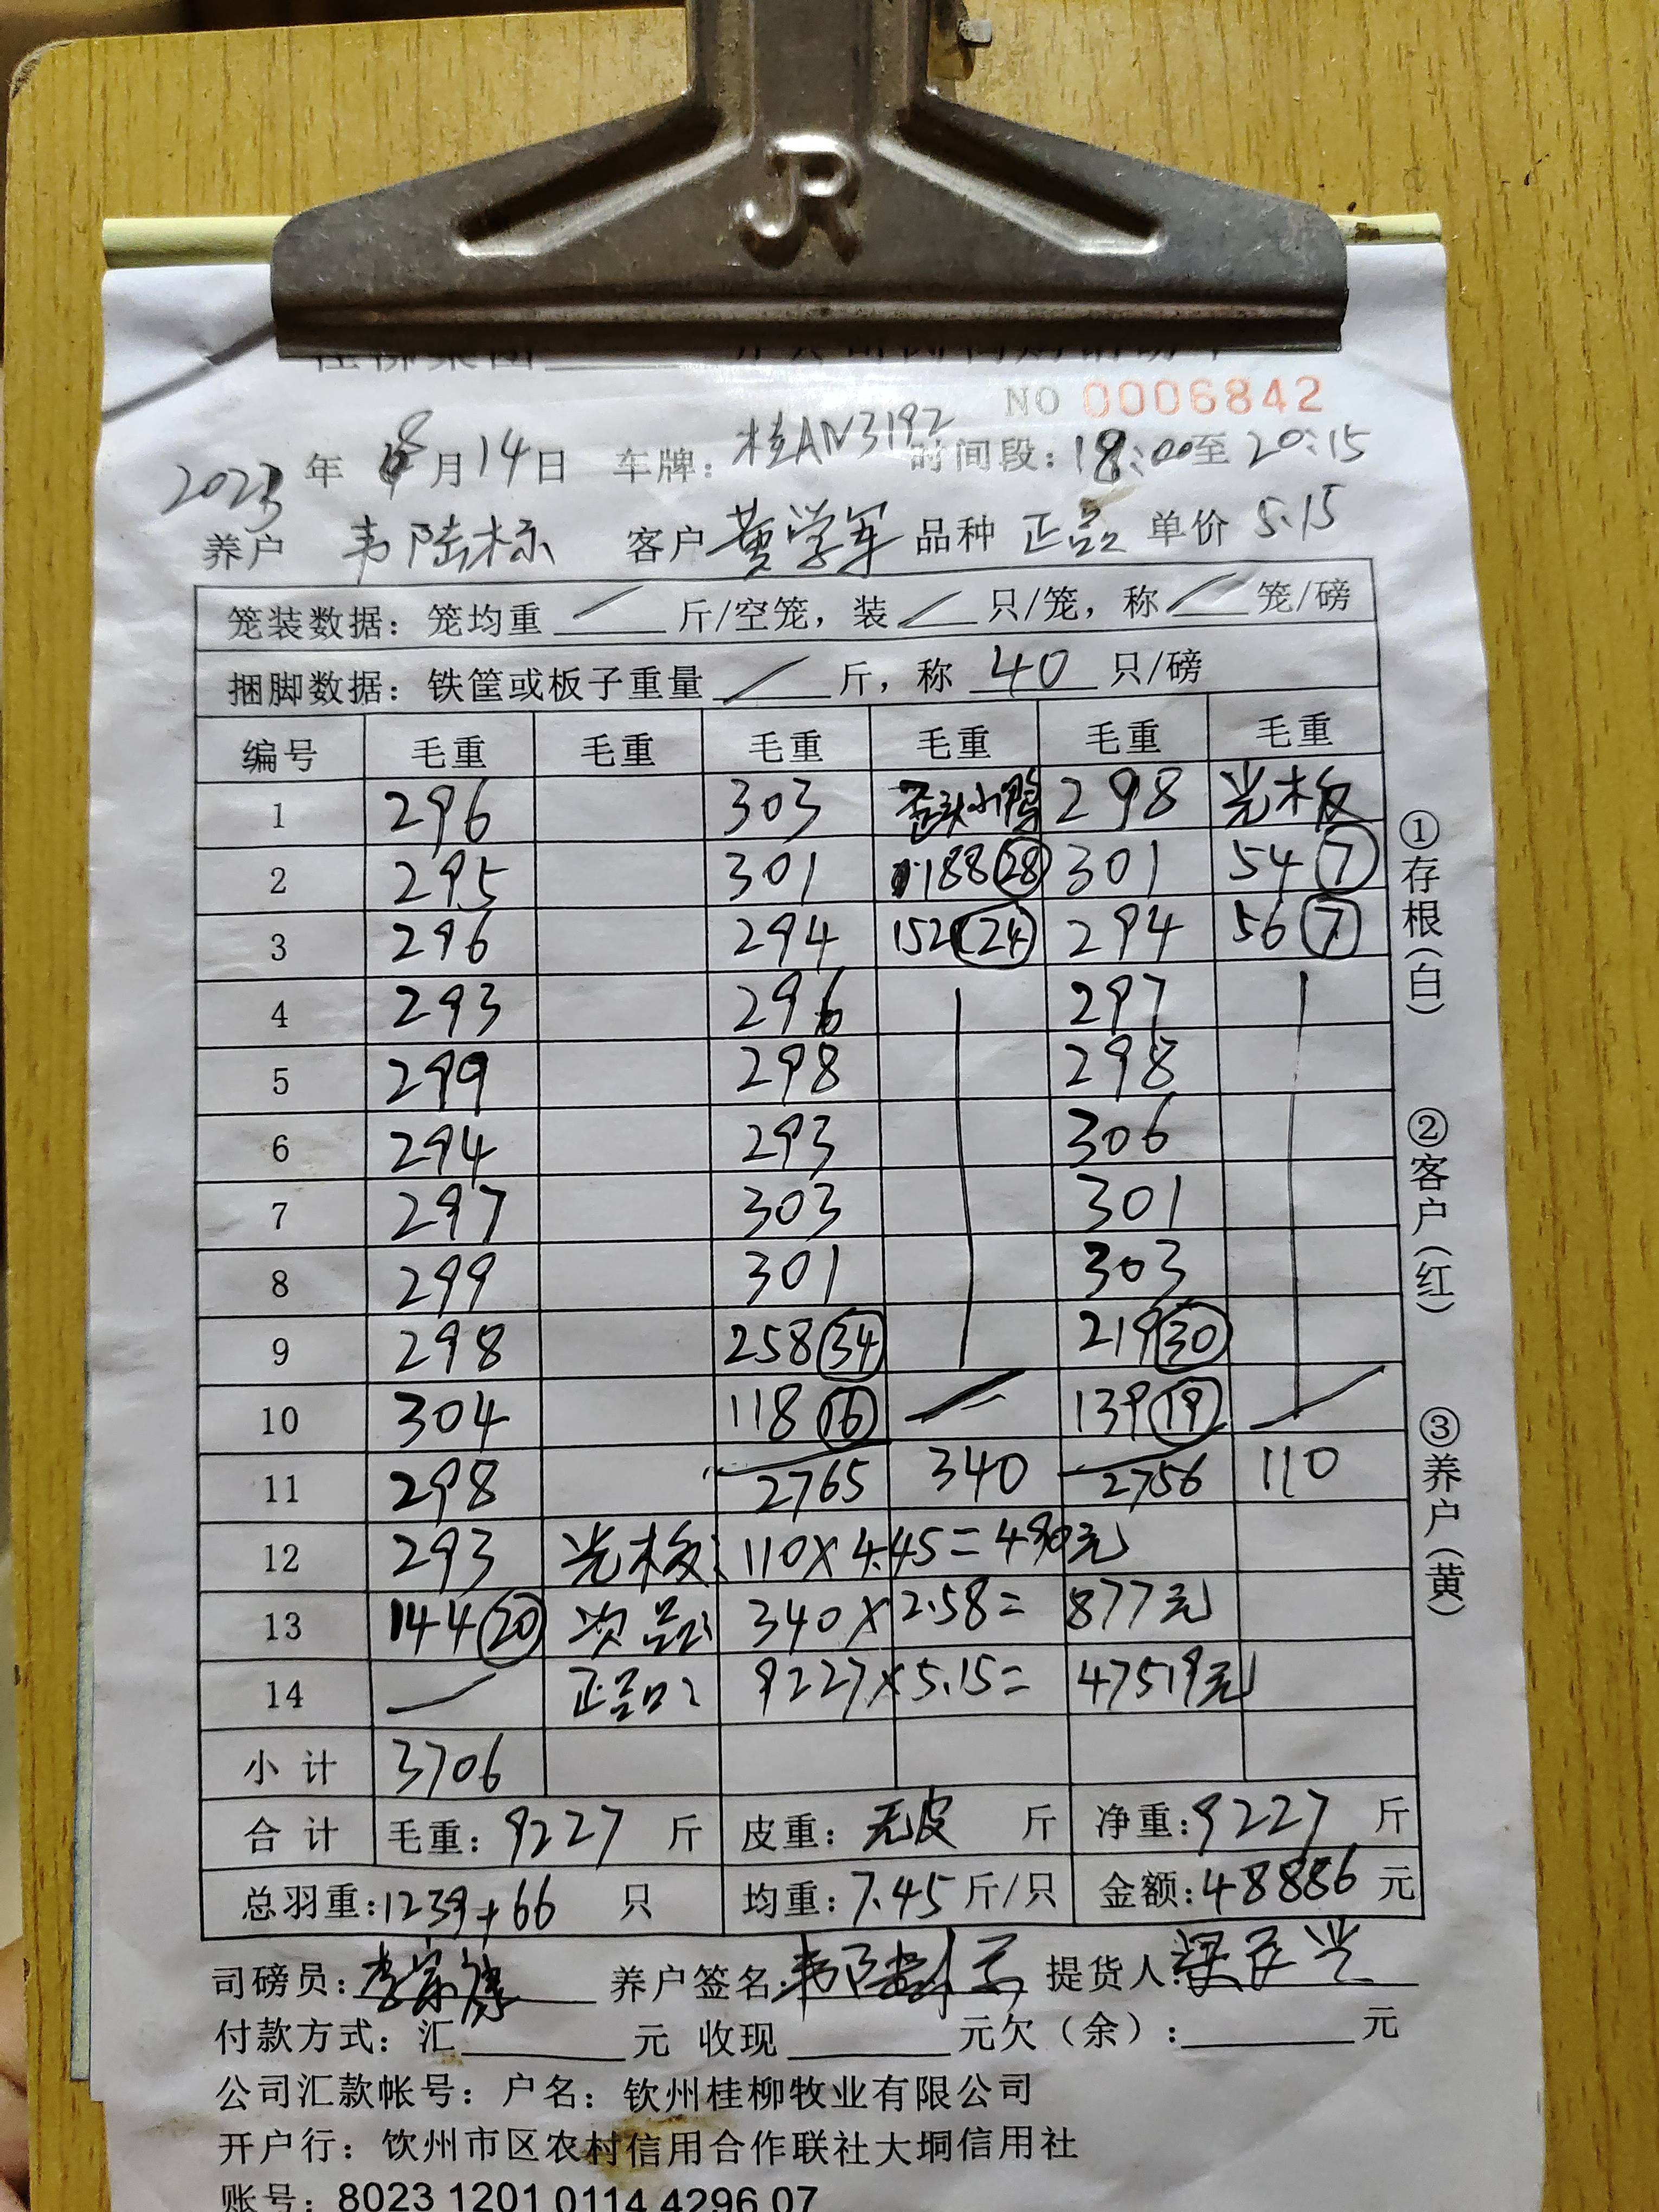 JR
NO 0006842
2023 年 8月14日 车牌: 桂AN3192 时间段: 18:00至 20:15
养户 韦陆标 客户 黄学军 品种 正品 单价 5.15
笼装数据: 笼均重 / 斤/空笼, 装 / 只/笼, 称 / 笼/磅
捆脚数据: 铁筐或板子重量 / 斤, 称 40 只/磅
编号 毛重 毛重 毛重 毛重 毛重 毛重
1 296 303 歪头小鸭 298 光板
2 295 301 188 28 301 54 7
3 296 294 152 24 294 56 7
4 293 296 297
5 299 298 298
6 294 293 306
7 297 303 301
8 299 301 303
9 298 258 34 219 30
10 304 118 16 139 19
11 298 2765 340 2756 110
12 293 光板: 110×4.45=490元
13 144 20 次品: 340×2.58= 877元
14 正品: 9227×5.15= 47519元
小计 3706
合计 毛重: 9227 斤 皮重: 无皮 斤 净重: 9227 斤
总羽重: 1239+66 只 均重: 7.45 斤/只 金额: 48886 元
司磅员: 养户签名: 提货人:
付款方式: 汇______元 收现______元欠(余):______元
公司汇款帐号: 户名: 钦州桂柳牧业有限公司
开户行: 饮州市区农村信用合作联社大垌信用社
账号: 8023 1201 0114 4296 07
①存根(白)
②客户(红)
③养户(黄)